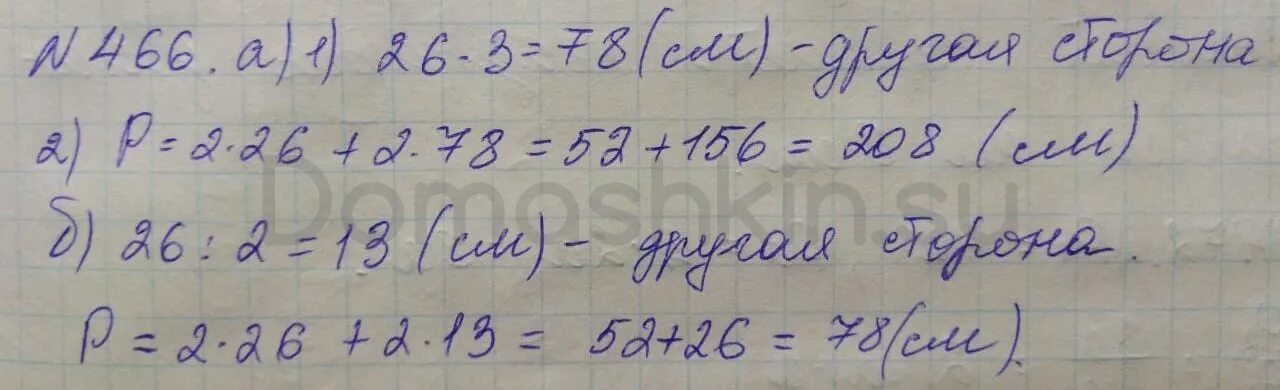 N 466. а) 1) 26·3=78 (см) - другая сторона
2) P=2·26+2·78=52+156=208 (см)
Domashkin.su
б) 26:2=13 (см) - другая сторона.
P=2·26+2·13= 52+26=78(см).